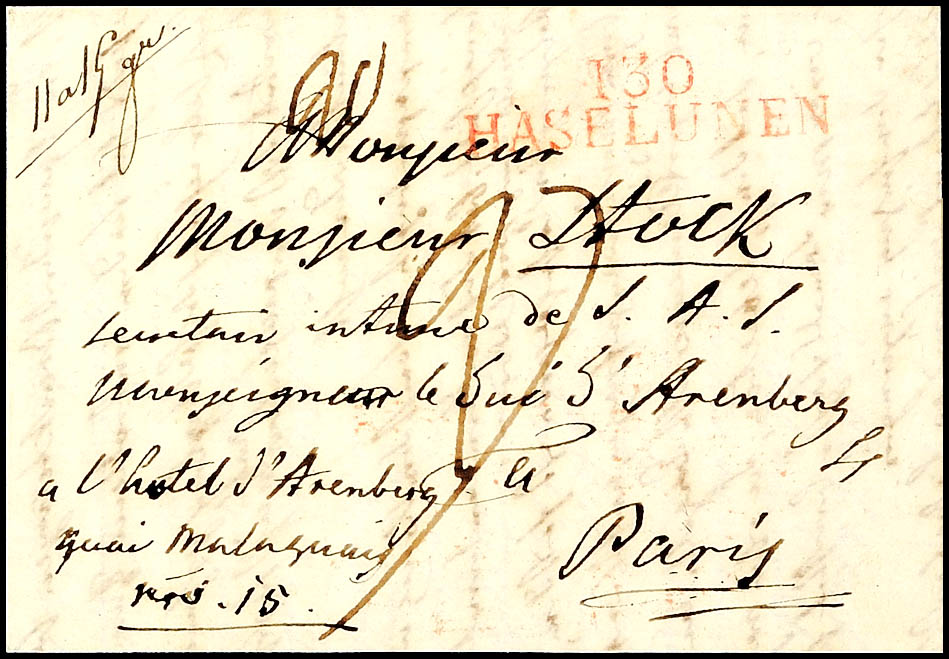 11 a 15 gr.
130
HASELUNEN
A Monsieur
Monsieur Stock
secretair intime de S. A. S.
Monseigneur le Duc d'Arenberg
a l'hotel d'Arenberg a
quai Malaquais Paris
nro. 15.